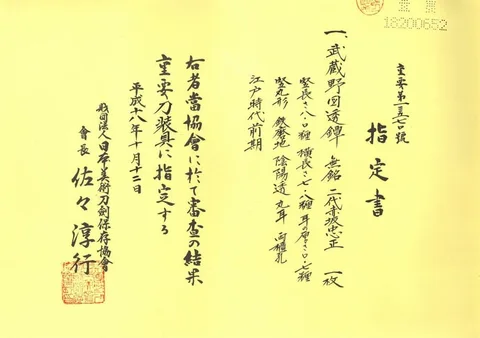 重要第一五七〇號
指定書
一、武蔵野図透鐔 無銘 二代赤坂忠正 一枚
竪長さ八・〇糎 横長さ七・八糎 耳の厚さ〇・七糎
竪丸形 鉄磨地 陰陽透 丸耳 両櫃孔
江戸時代前期
右者當協會に於て審査の結果
重要刀装具に指定する
平成十八年十月十二日
財団法人日本美術刀劍保存協會
會長 佐々淳行
18200652